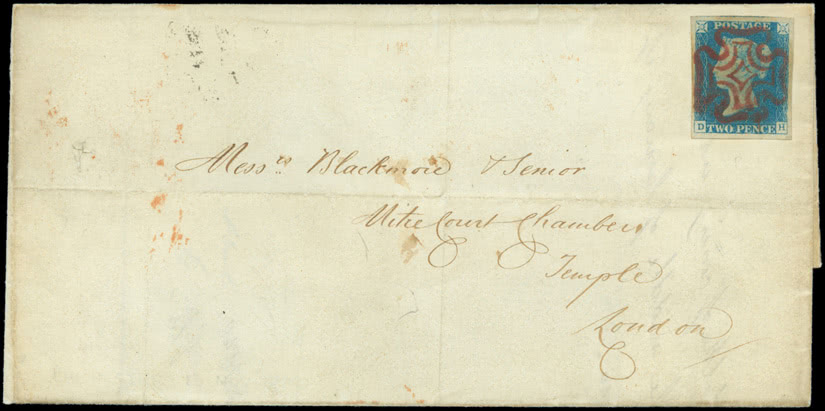 POSTAGE
D TWO PENCE H
Mess.rs Blackmore & Senior
Mitre Court Chambers
Temple
London